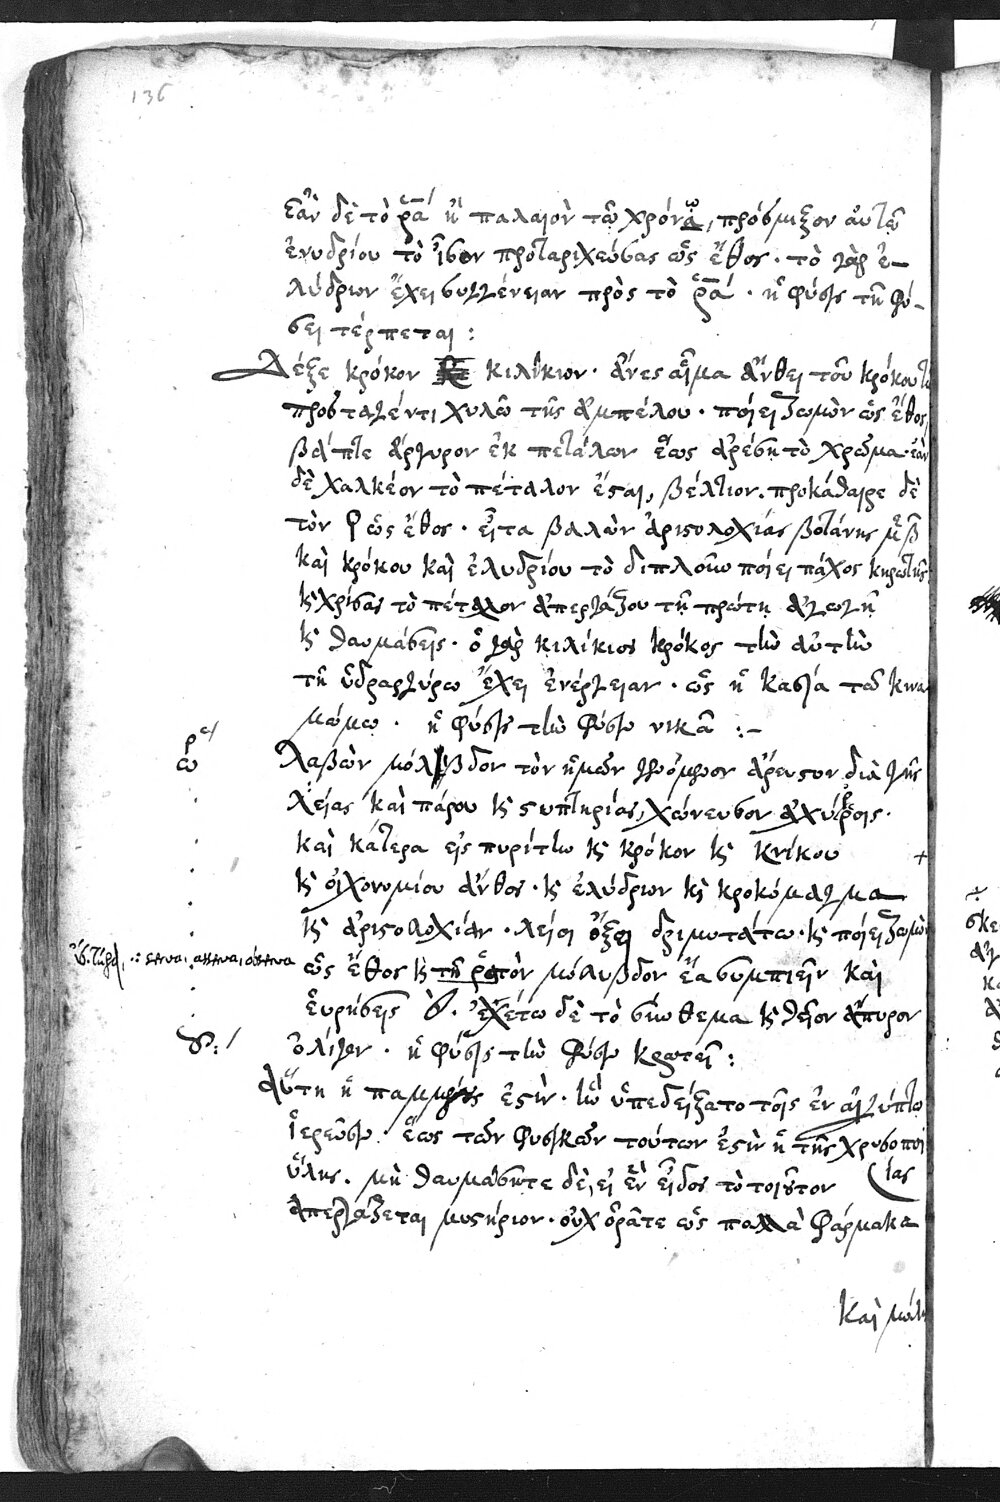 136
ἐὰν δὲ τὸ ρ̅α̅ ᾖ παλαιὸν τῶ χρόνω, πρόσμιξον αὐτῶ
ἐνυδρίου τὸ ἴσον προταριχεύσας ὡς ἔθος. τὸ γὰρ ἐ-
λύδριον ἔχει συγγένειαν πρὸς τὸ ρ̅α̅. ἡ φύσις τῇ φύ-
σει τέρπεται:
Δέξε κρόκον κιλίκιον. ἄνες ἅμα ἄνθει τοῦ κρόκου τῶ
προσταγέντι χυλῶ τῆς ἀμπέλου. ποίει ζωμὸν ὡς ἔθος,
βάπτε ἄργυρον ἐκ πετάλων ἕως ἀρέσῃ τὸ χρῶμα. ἐὰν
δὲ χαλκέον τὸ πέταλον ἔσαι, βέλτιον. προκάθαιρε δὲ
τὸν ὡς ἔθος. εἶτα βαλὼν ἀριστολοχίας βοτάνης μέρη β
καὶ κρόκου καὶ ἐλυδρίου τὸ διπλοῦν ποίει πάχος κηρωτῆς
κ χρίσας τὸ πέταλον ἀπεργάζου τῇ πρώτη ἀγωγῇ
κ θαυμάσεις. ὁ γὰρ κιλίκιος κρόκος τὴν αὐτὴν
τῇ ὑδραργύρω ἔχει ἐνέργειαν. ὡς ἡ κασία τῶ κινα
μώμω. ἡ φύσις τὴν φύσιν νικᾶ :-
Λαβὼν μόλυβδον τὸν ἡμῶν γενόμενον ἄρευστον διὰ γῆς
χείας καὶ πάρου κ στυπτηρίας, χώνευσον ἀχύροις.
καὶ κάτερα εἰς πυρίτην κ κρόκον κ κνίκου
κ οἰχονομίου ἄνθος. κ ἐλύδριον κ κροκόμαγμα
κ ἀριστολοχίαν. λείοι ὄξει δριμυτάτω. κ ποίει ζωμὸν
ὡς ἔθος κ τὸν μόλυβδον ἔα συμπιεῖν καὶ
εὑρήσεις. ἐχέτω δὲ τὸ σύνθεμα κ θεῖον ἄπυρον
ὀλίγον. ἡ φύσις τὴν φύσιν κρατεῖ:
αὕτη ἡ παμμένης ἐστὶν. ἣν ὑπεδείξατο τοῖς ἐν αἰγύπτω
ἱερεῦσιν. ἕως τῶν φυσικῶν τούτων ἐστὶν ἡ τῆς χρυσοποι
ίας
ὕλης. μὴ θαυμάσητε δὲ, εἰ ἓν εἶδος τὸ τοιοῦτον
ἀπεργάζεται μυστήριον. οὐχ ὁρᾶτε ὡς πολλὰ φάρμακα
καὶ μόλις